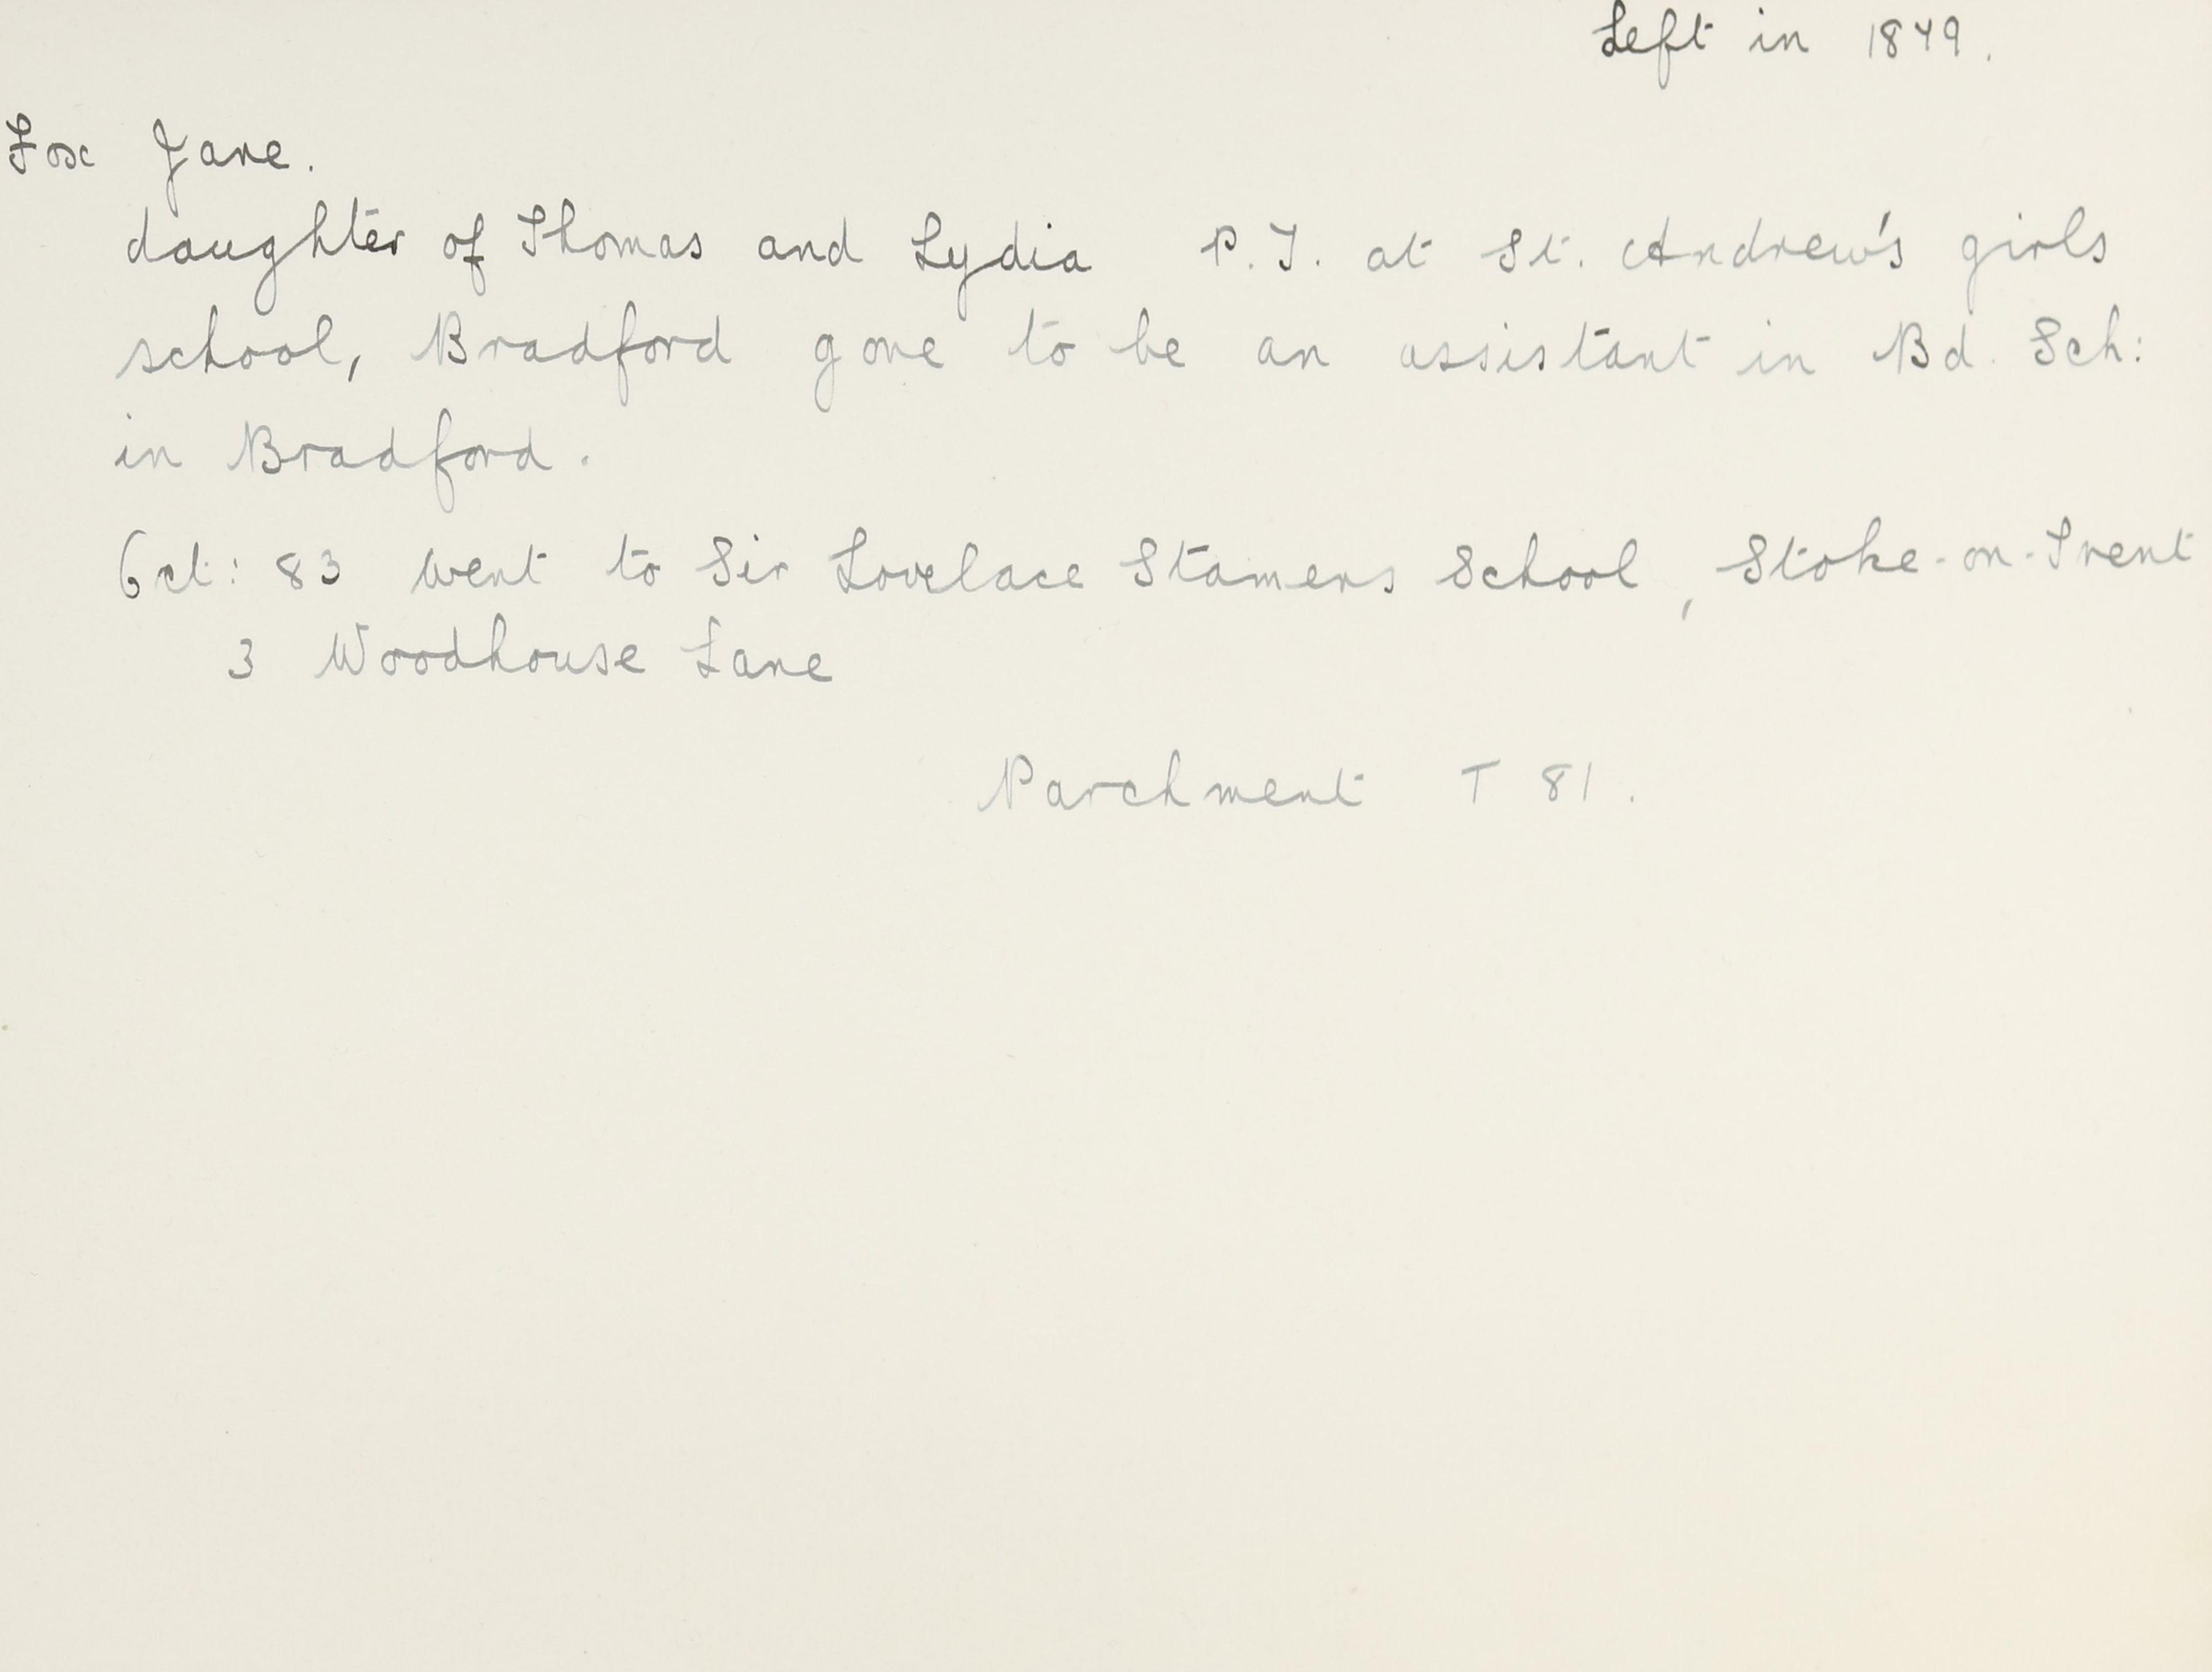 Left in 1849.
Fox Jane.
daughter of Thomas and Lydia P.T. at St. Andrew's girls
school, Bradford gone to be an assistant in Bd. Sch:
in Bradford.
Oct: 83 went to Sir Lovelace Stamers School, Stoke-on-Trent
3 Woodhouse Lane
Parchment T 81.